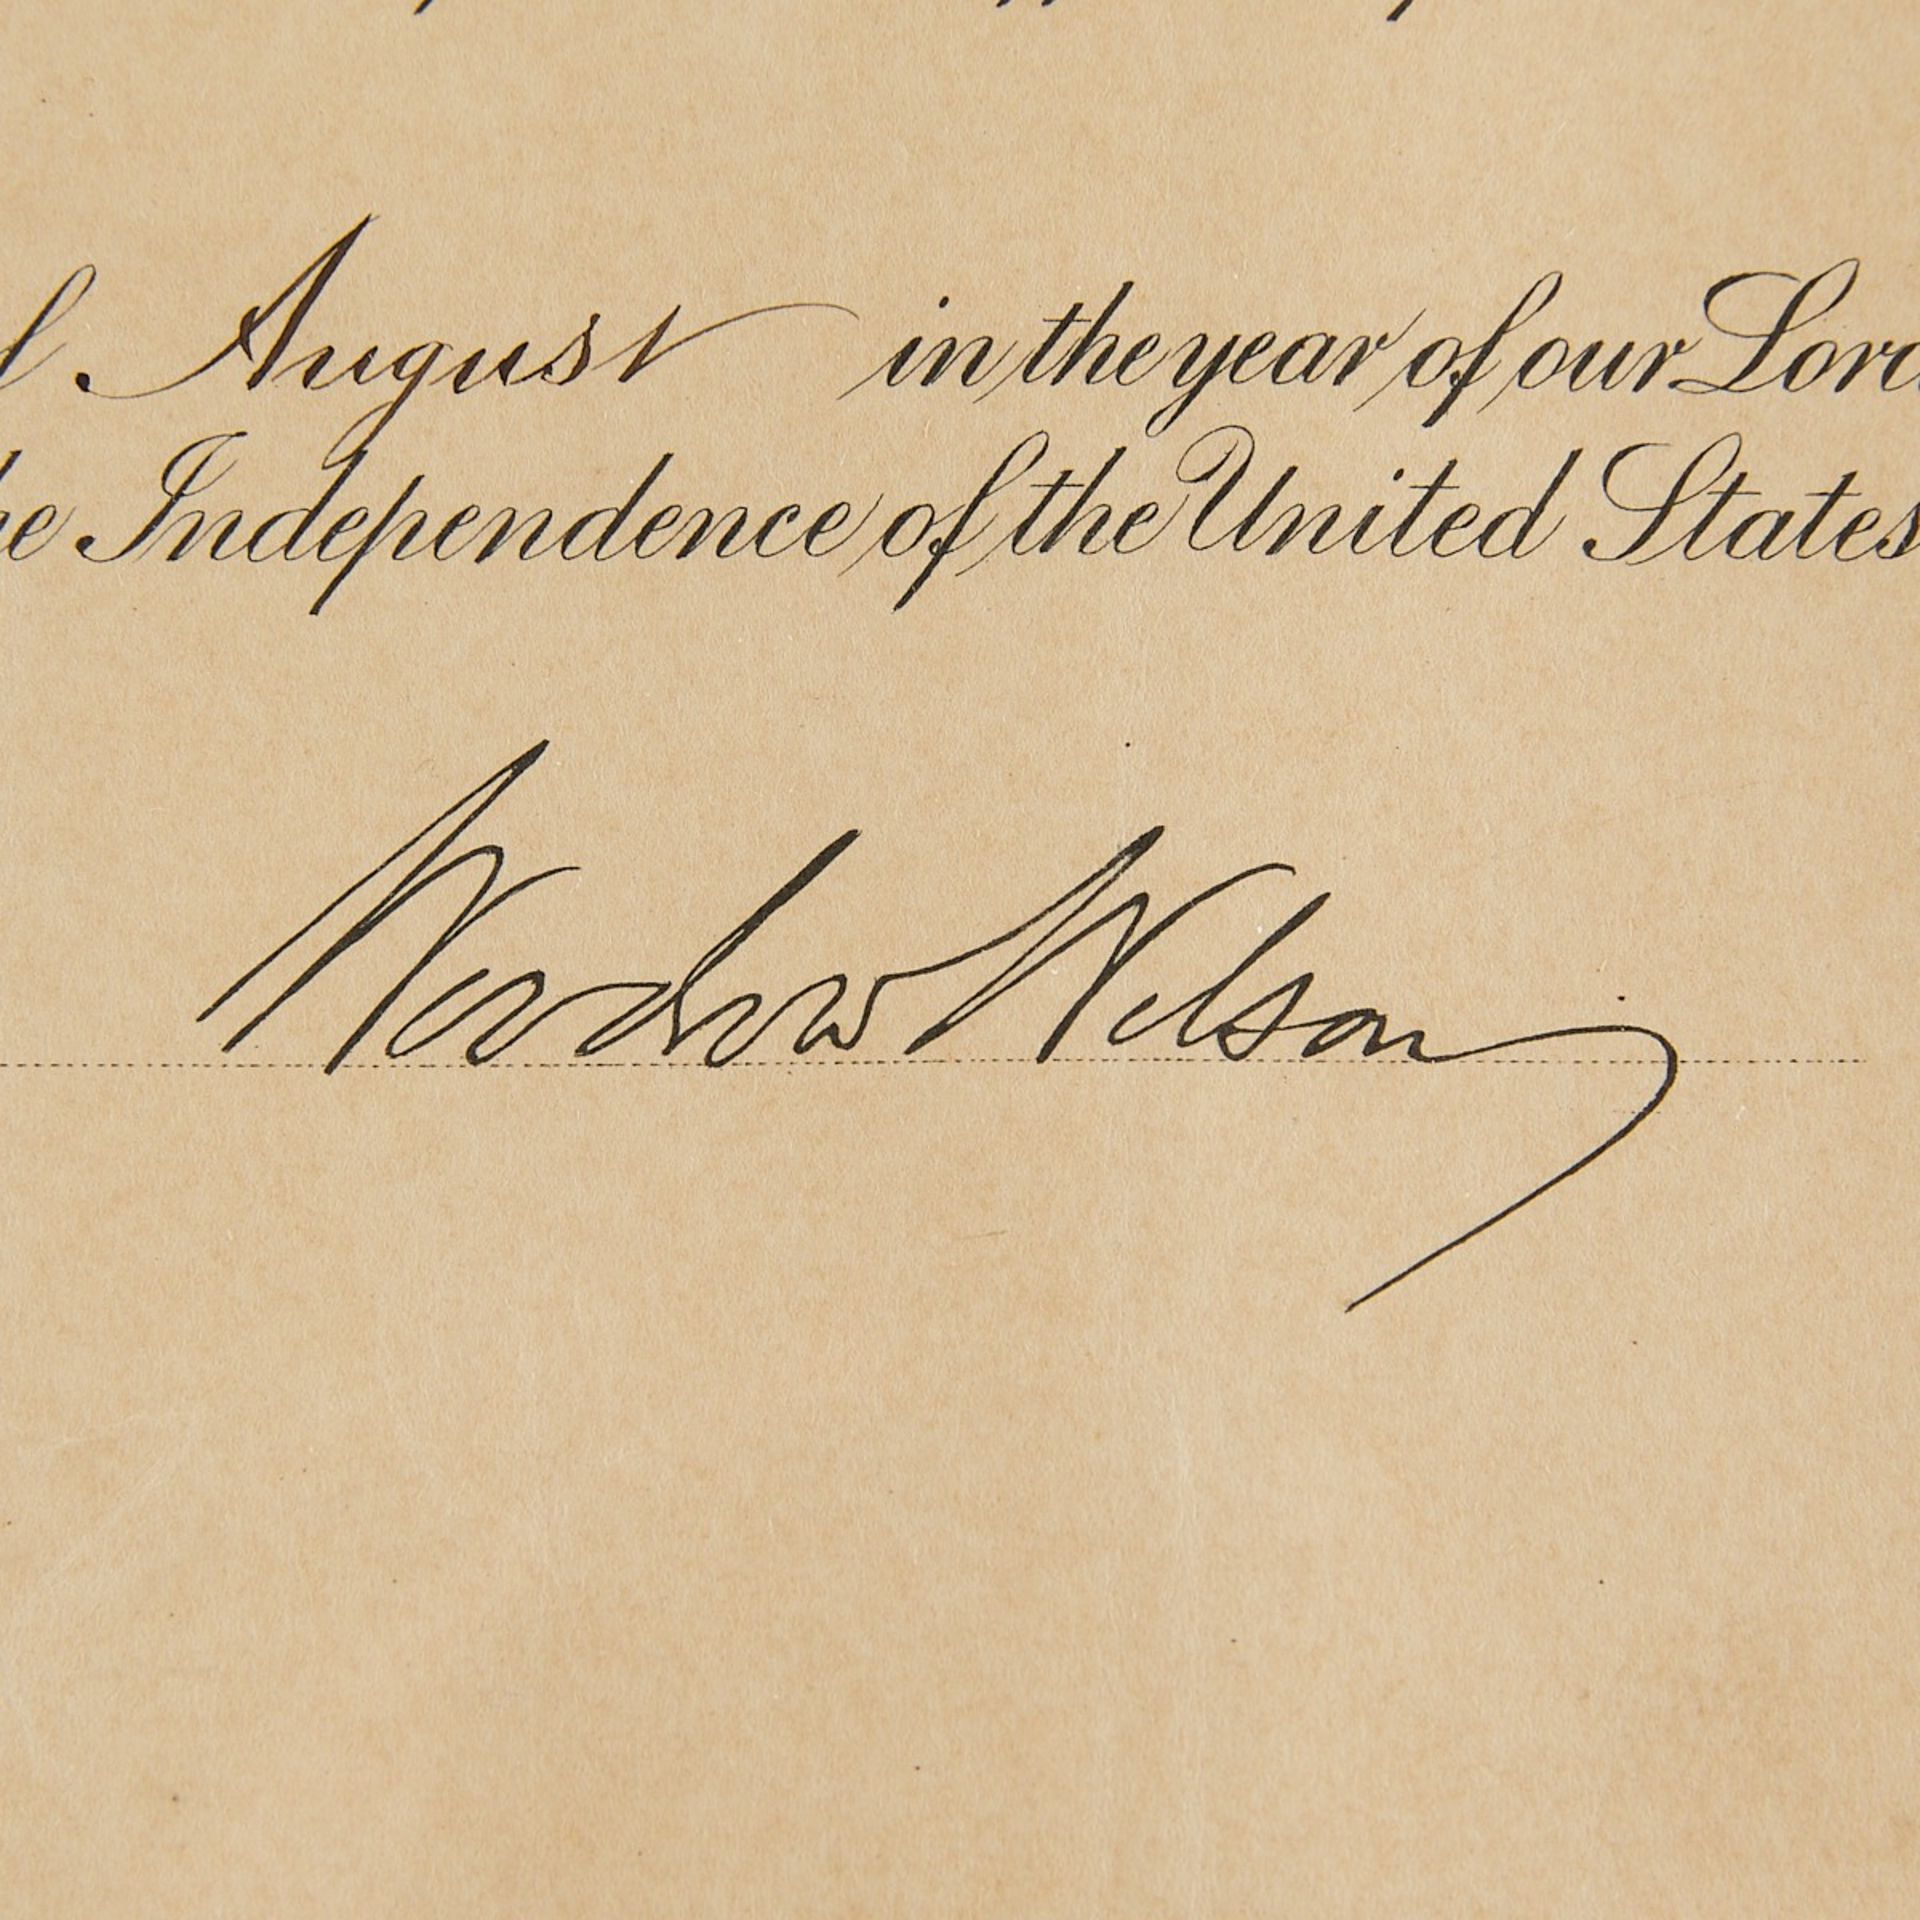 August in the year of our Lord
Independence of the United States
Woodrow Wilson